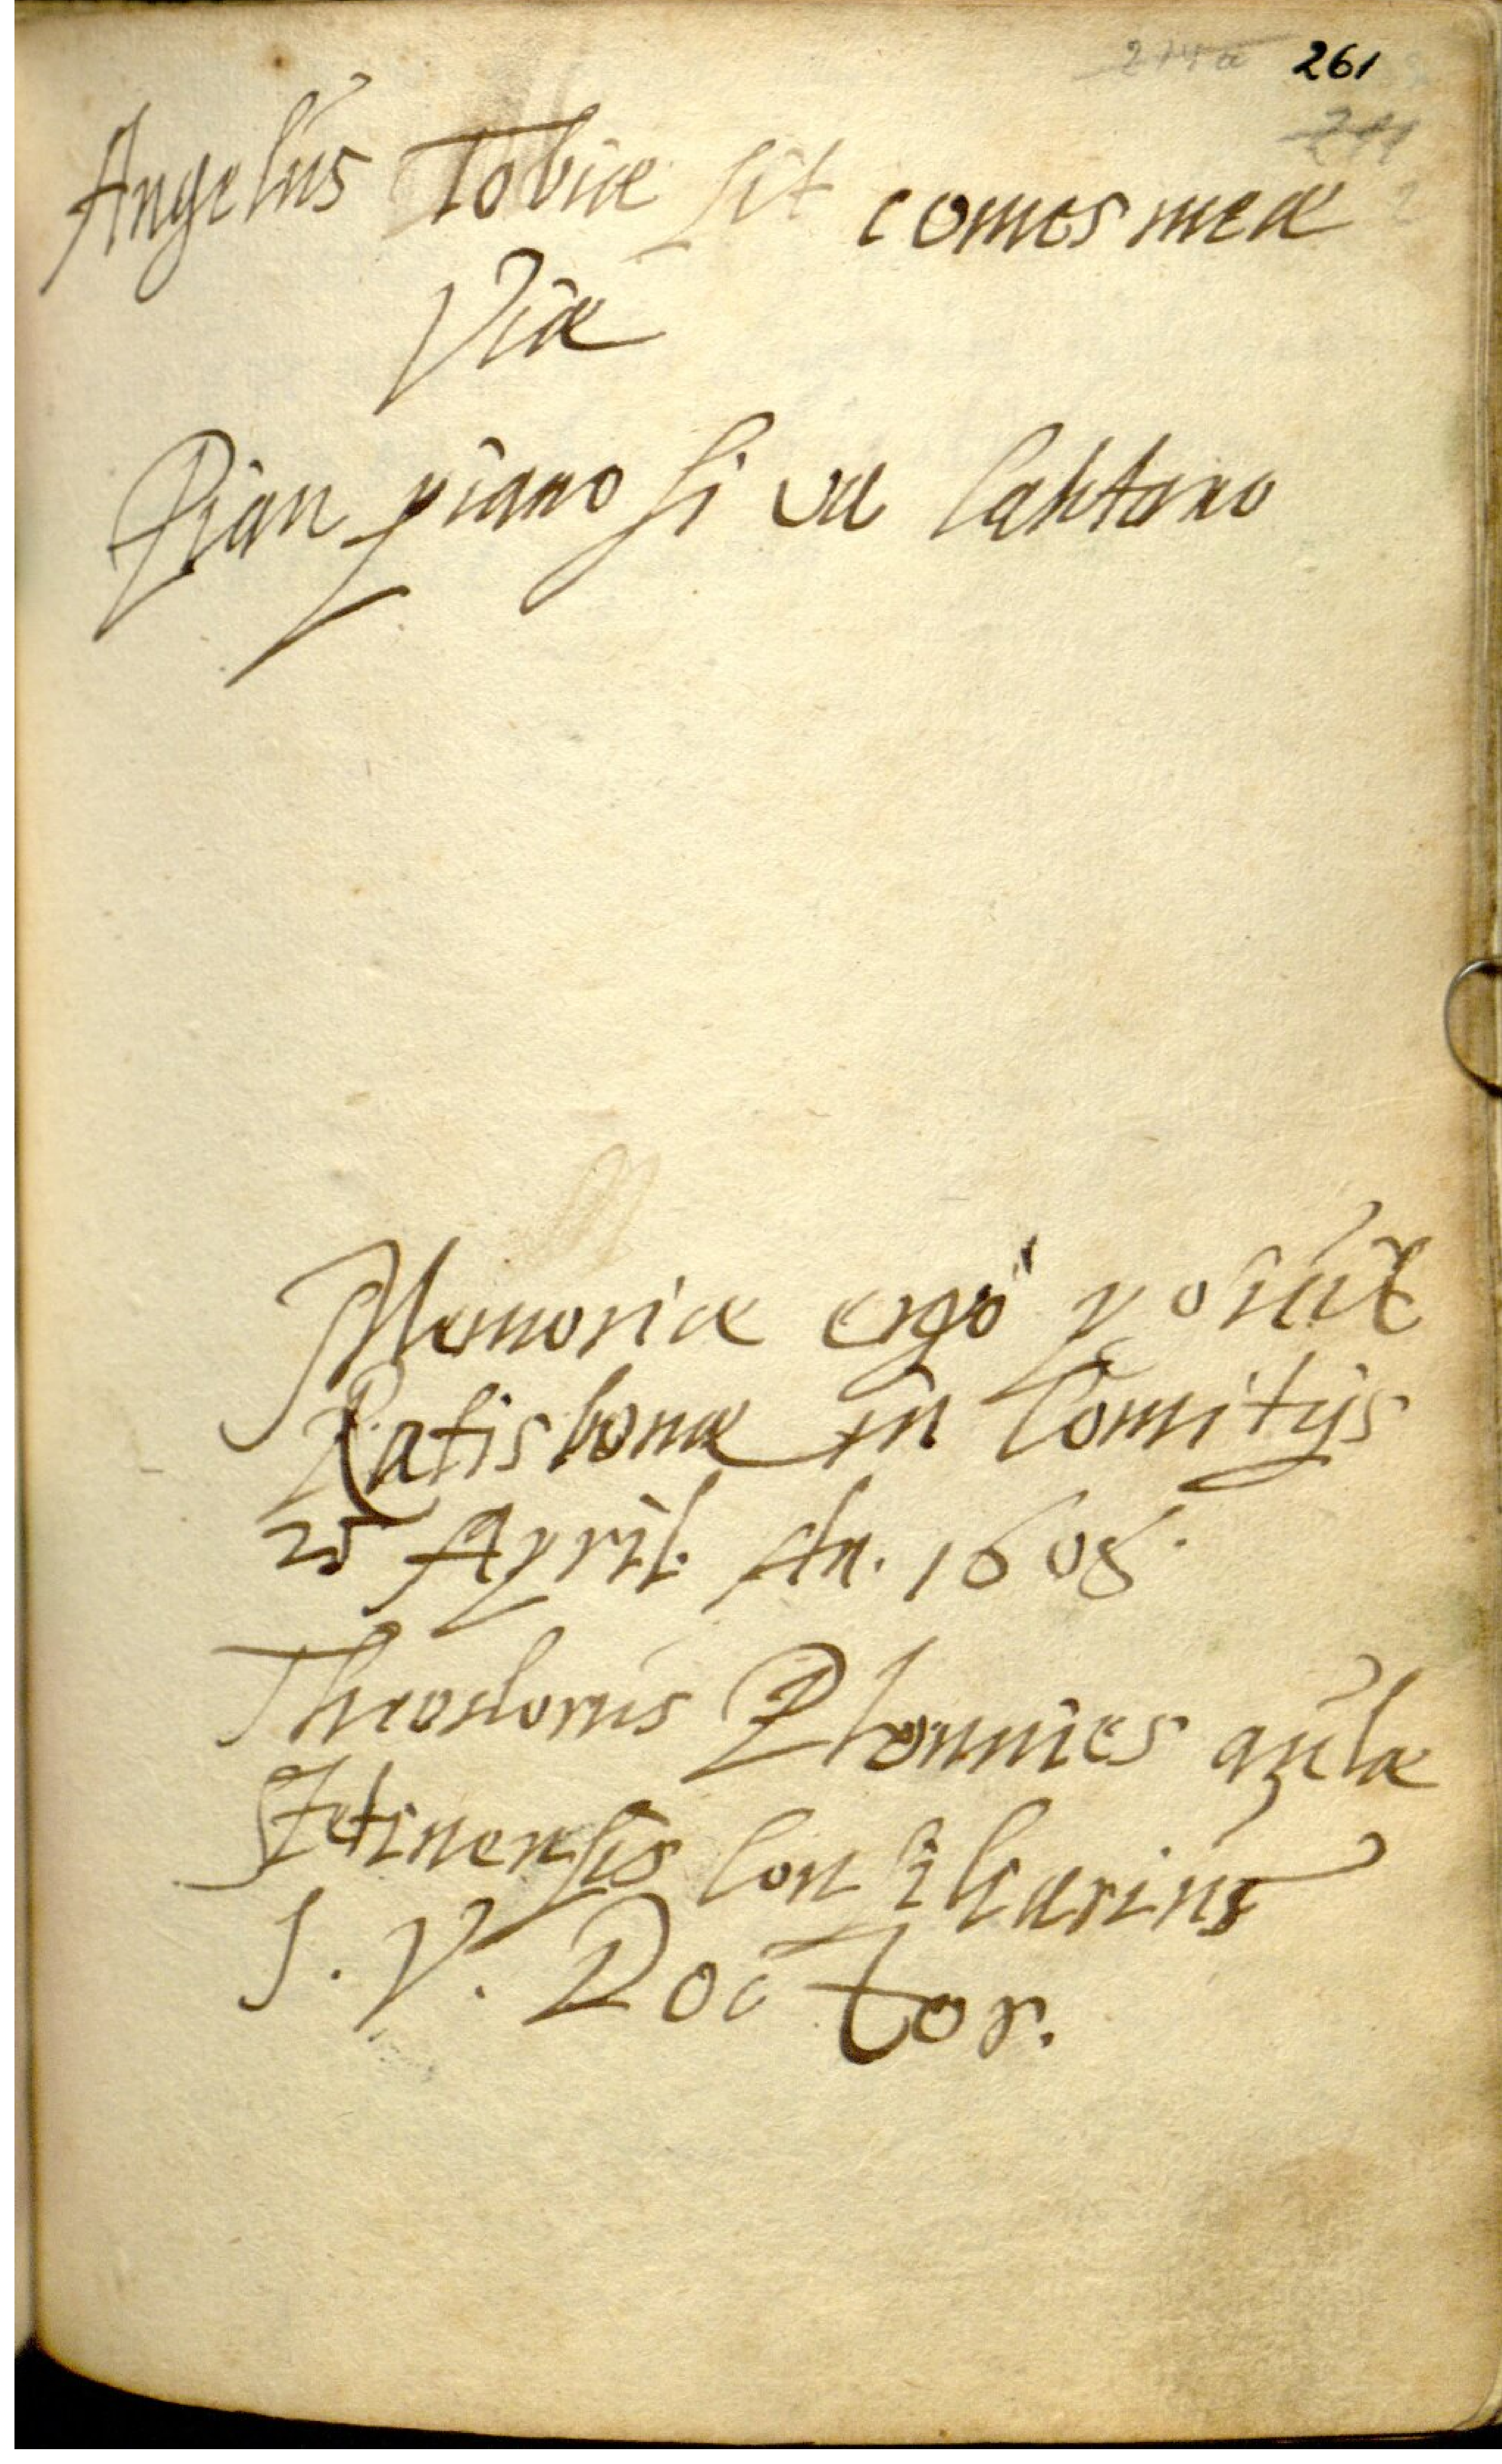 261
Angelus Tobiæ sit comes meæ
Viæ
Pian piano si va lontano
Memoriæ ergò posuit
Ratisbonæ in Comitijs
25 April. An. 1608.
Theodorus Plonnies aulæ
Stetinensis Consiliarius
J. V. Doctor.